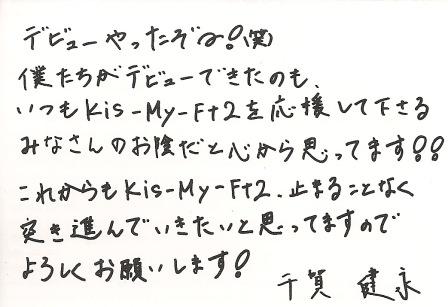 デビューやったぞ〜!(笑)
僕たちがデビューできたのも、
いつもKis-My-Ft2を応援して下さる
みなさんのお陰だと心から思ってます!!
これからもKis-My-Ft2、止まることなく
突き進んでいきたいと思ってますので
よろしくお願いします!
千賀 健永